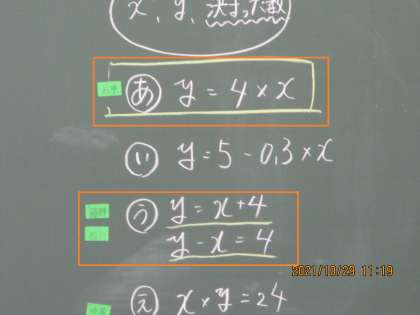 x、y、決まった数
あ y = 4 × x
い y = 5 - 0.3 × x
う y = x + 4
y - x = 4
2021/10/29 11:19
え x × y = 24